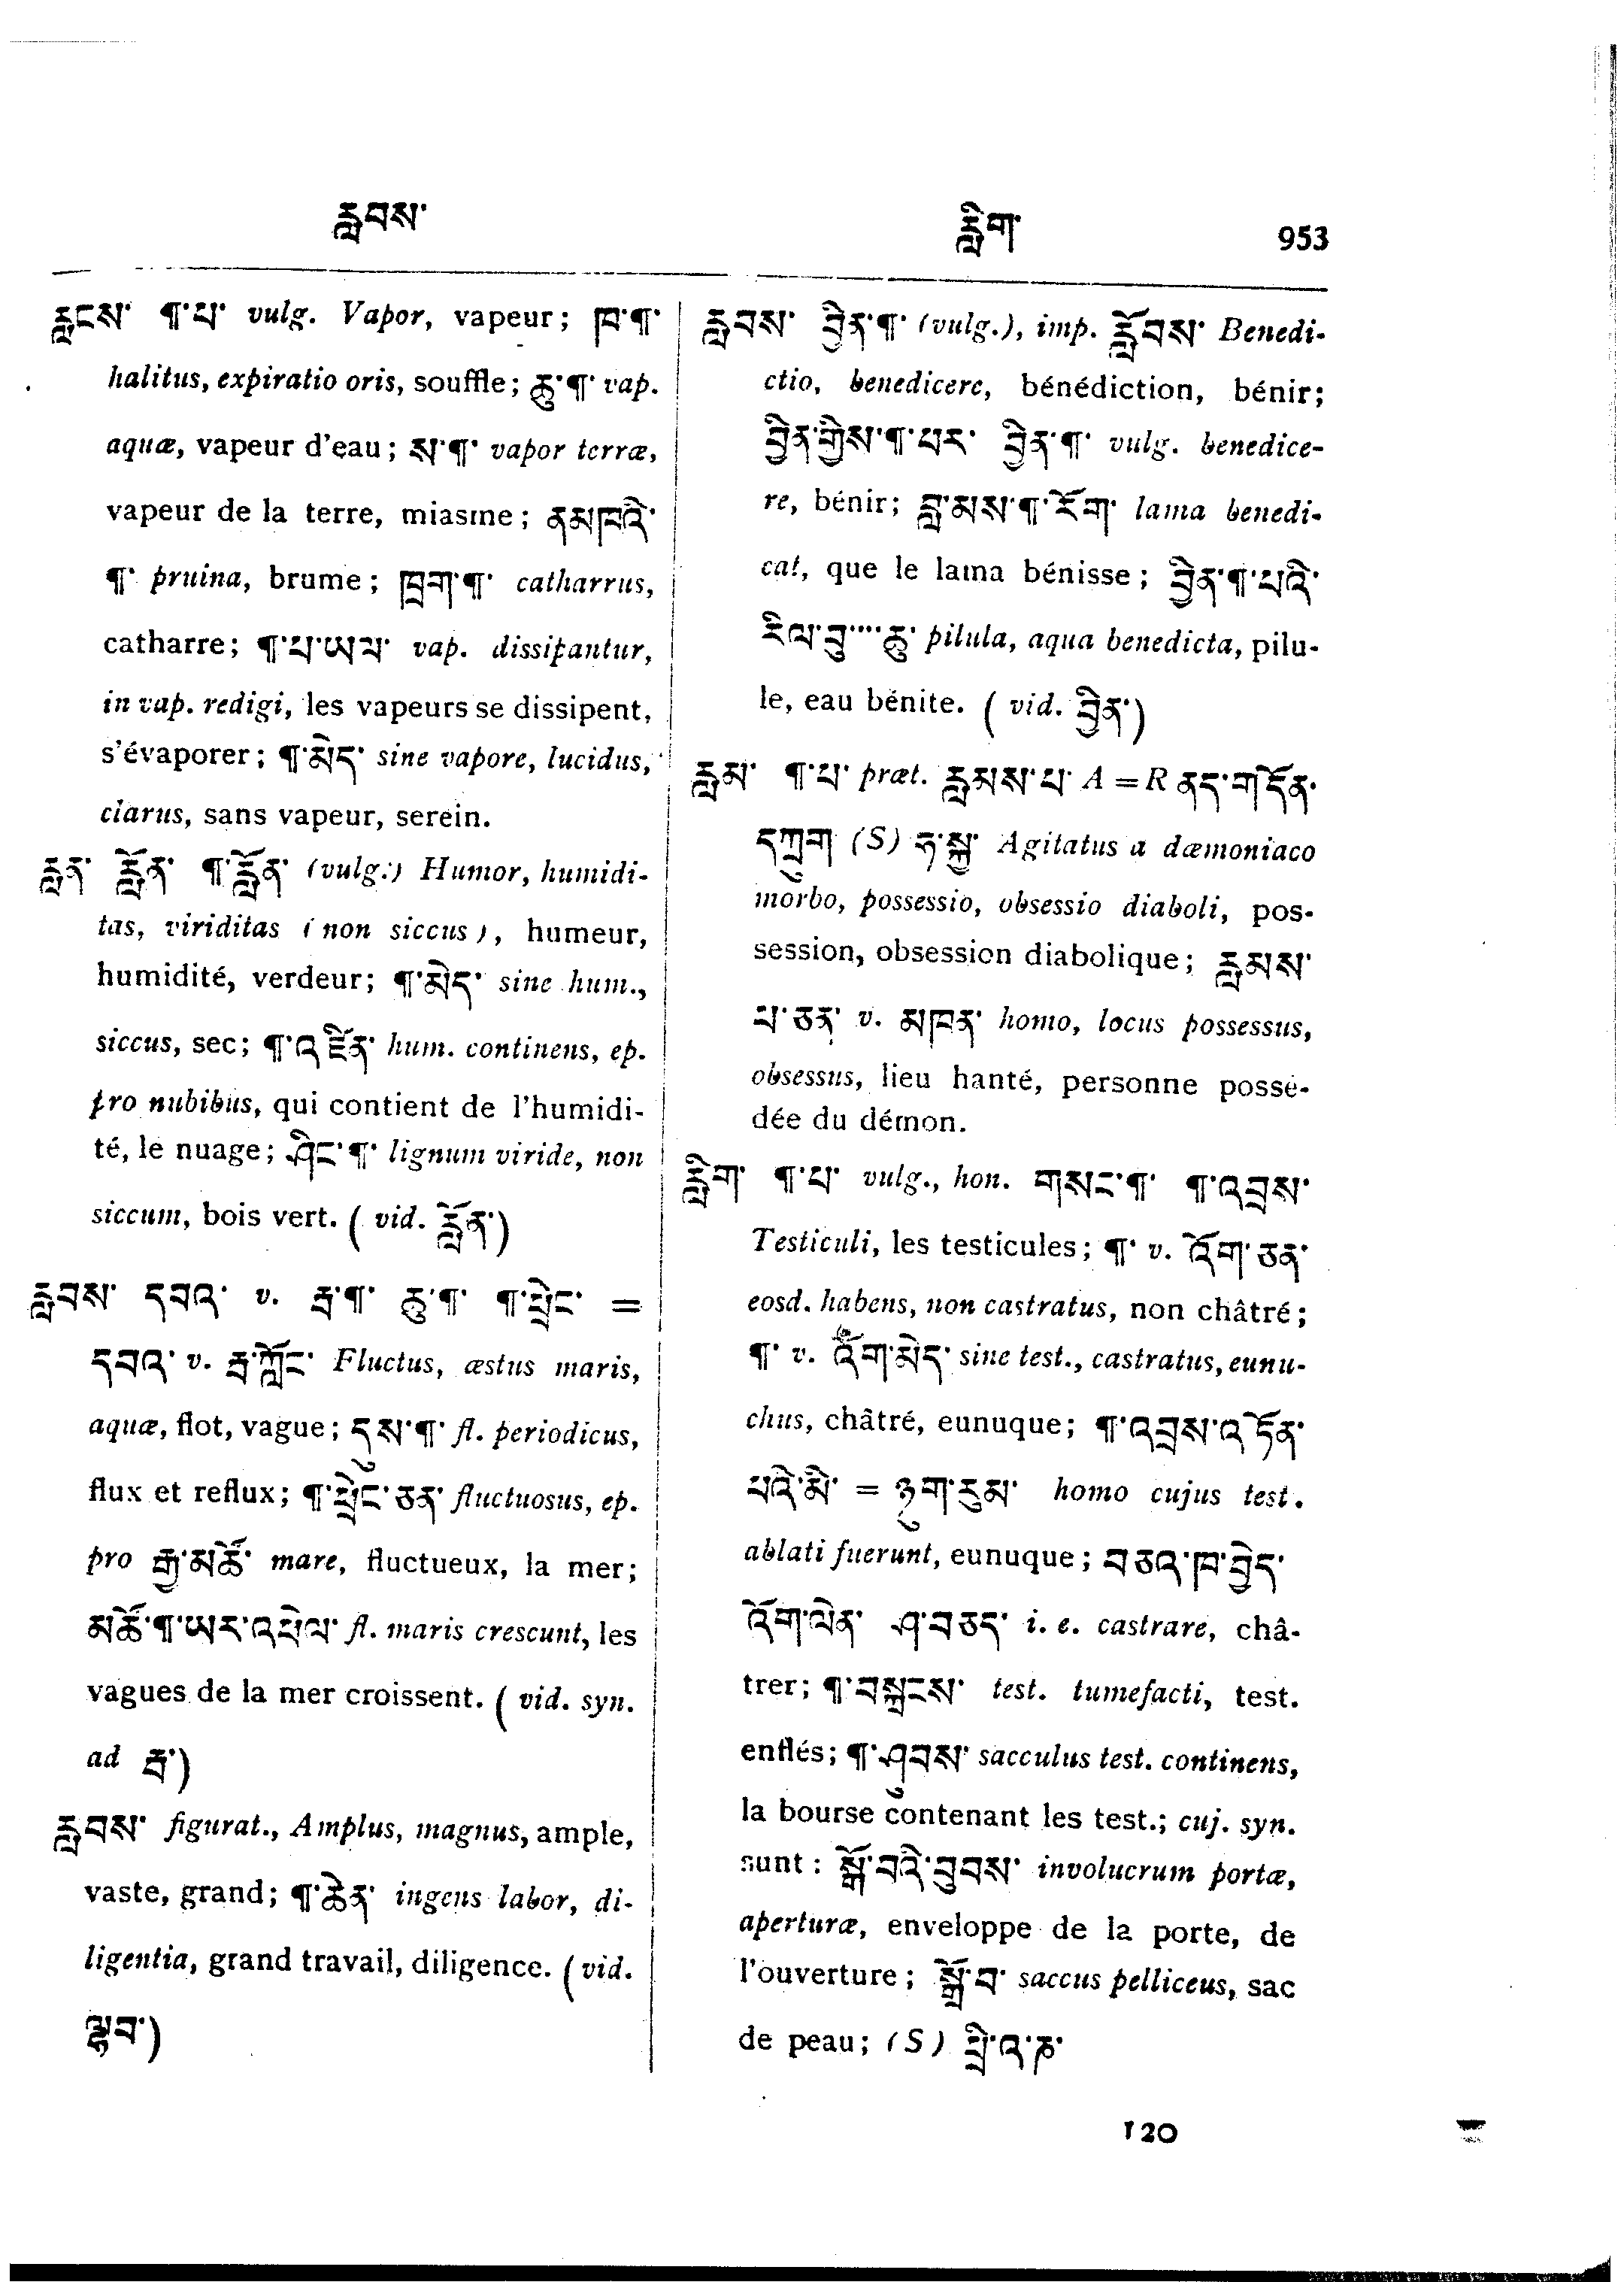 རླབས་ རླིག་ 953
རླངས་ ¶་པ་ vulg. Vapor, vapeur; ཁ་¶་
halitus, expiratio oris, souffle; ཆུ་¶་ vap.
aquæ, vapeur d'eau; ས་¶་ vapor terræ,
vapeur de la terre, miasme; ནམཁའི་
¶་ pruina, brume; ཁྲག་¶་ catharrus,
catharre; ¶་པ་ཡལ་ vap. dissipantur,
in vap. redigi, les vapeurs se dissipent,
s'évaporer; ¶་མེད་ sine vapore, lucidus,
clarus, sans vapeur, serein.
རླན་ རློན་ ¶་རློན་ (vulg.) Humor, humidi-
tas, viriditas (non siccus), humeur,
humidité, verdeur; ¶་མེད་ sine hum.,
siccus, sec; ¶་འཛིན་ hum. continens, ep.
pro nubibus, qui contient de l'humidi-
té, le nuage; ཤིང་¶་ lignum viride, non
siccum, bois vert. (vid. རློན་)
རླབས་ དབའ་ v. རྦ་¶་ ཆུ་¶་ ¶་ཕྲེང་ =
དབའ་ v. རྦ་ཀློང་ Fluctus, æstus maris,
aquæ, flot, vague; དུས་¶་ fl. periodicus,
flux et reflux; ¶་ཕྲེང་ཅན་ fluctuosus, ep.
pro རྒྱ་མཚོ་ mare, fluctueux, la mer;
མཚོ་¶་ཡར་འཕེལ་ fl. maris crescunt, les
vagues de la mer croissent. (vid. syn.
ad རྦ་)
རླབས་ figurat., Amplus, magnus, ample,
vaste, grand; ¶་ཆེན་ ingens labor, di-
ligentia, grand travail, diligence. (vid.
ལྷབ་)
རླབས་ བྱིན་¶་ (vulg.), imp. རློབས་ Benedi-
ctio, benedicere, bénédiction, bénir;
བྱིན་གྱིས་¶་པར་ བྱིན་¶་ vulg. benedice-
re, bénir; བླ་མས་¶་རོག་ lama benedi-
cat, que le lama bénisse; བྱིན་¶་པའི་
རིལ་བུ་...་ཆུ་ pilula, aqua benedicta, pilu-
le, eau bénite. (vid. བྱིན་)
རླམ་ ¶་པ་ præt. རླམས་པ་ A = R ནད་གདོན་
དཀྲུག (S) ཧ་སྐྱ་ Agitatus a dæmoniaco
morbo, possessio, obsessio diaboli, pos-
session, obsession diabolique; རླམས་
པ་ཅན་ v. མཁན་ homo, locus possessus,
obsessus, lieu hanté, personne possé-
dée du démon.
རླིག་ ¶་པ་ vulg., hon. གསང་¶་ ¶་འབྲས་
Testiculi, les testicules; ¶་ v. འོག་ཅན་
eosd. habens, non castratus, non châtré;
¶་ v. འོག་མེད་ sine test., castratus, eunu-
chus, châtré, eunuque; ¶་འབྲས་འདོན་
པའི་མི་ = ཉུག་རུམ་ homo cujus test.
ablati fuerunt, eunuque; བཅའ་ཁ་བྱེད་
འོག་ལེན་ ཤ་བཅད་ i. e. castrare, châ-
trer; ¶་བསྐྲངས་ test. tumefacti, test.
enflés; ¶་ཤུབས་ sacculus test. continens,
la bourse contenant les test.; cuj. syn.
sunt: སྒོ་བའི་བུབས་ involucrum portæ,
aperturæ, enveloppe de la porte, de
l'ouverture; སྒྲོ་བ་ saccus pelliceus, sac
de peau; (S) ཕྲི་འ་ཎ་
120